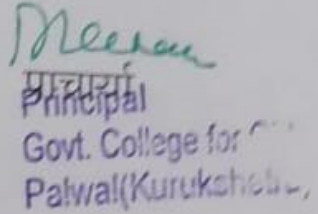 प्राचार्या
Principal
Govt. College for
Palwal(Kurukshetra,